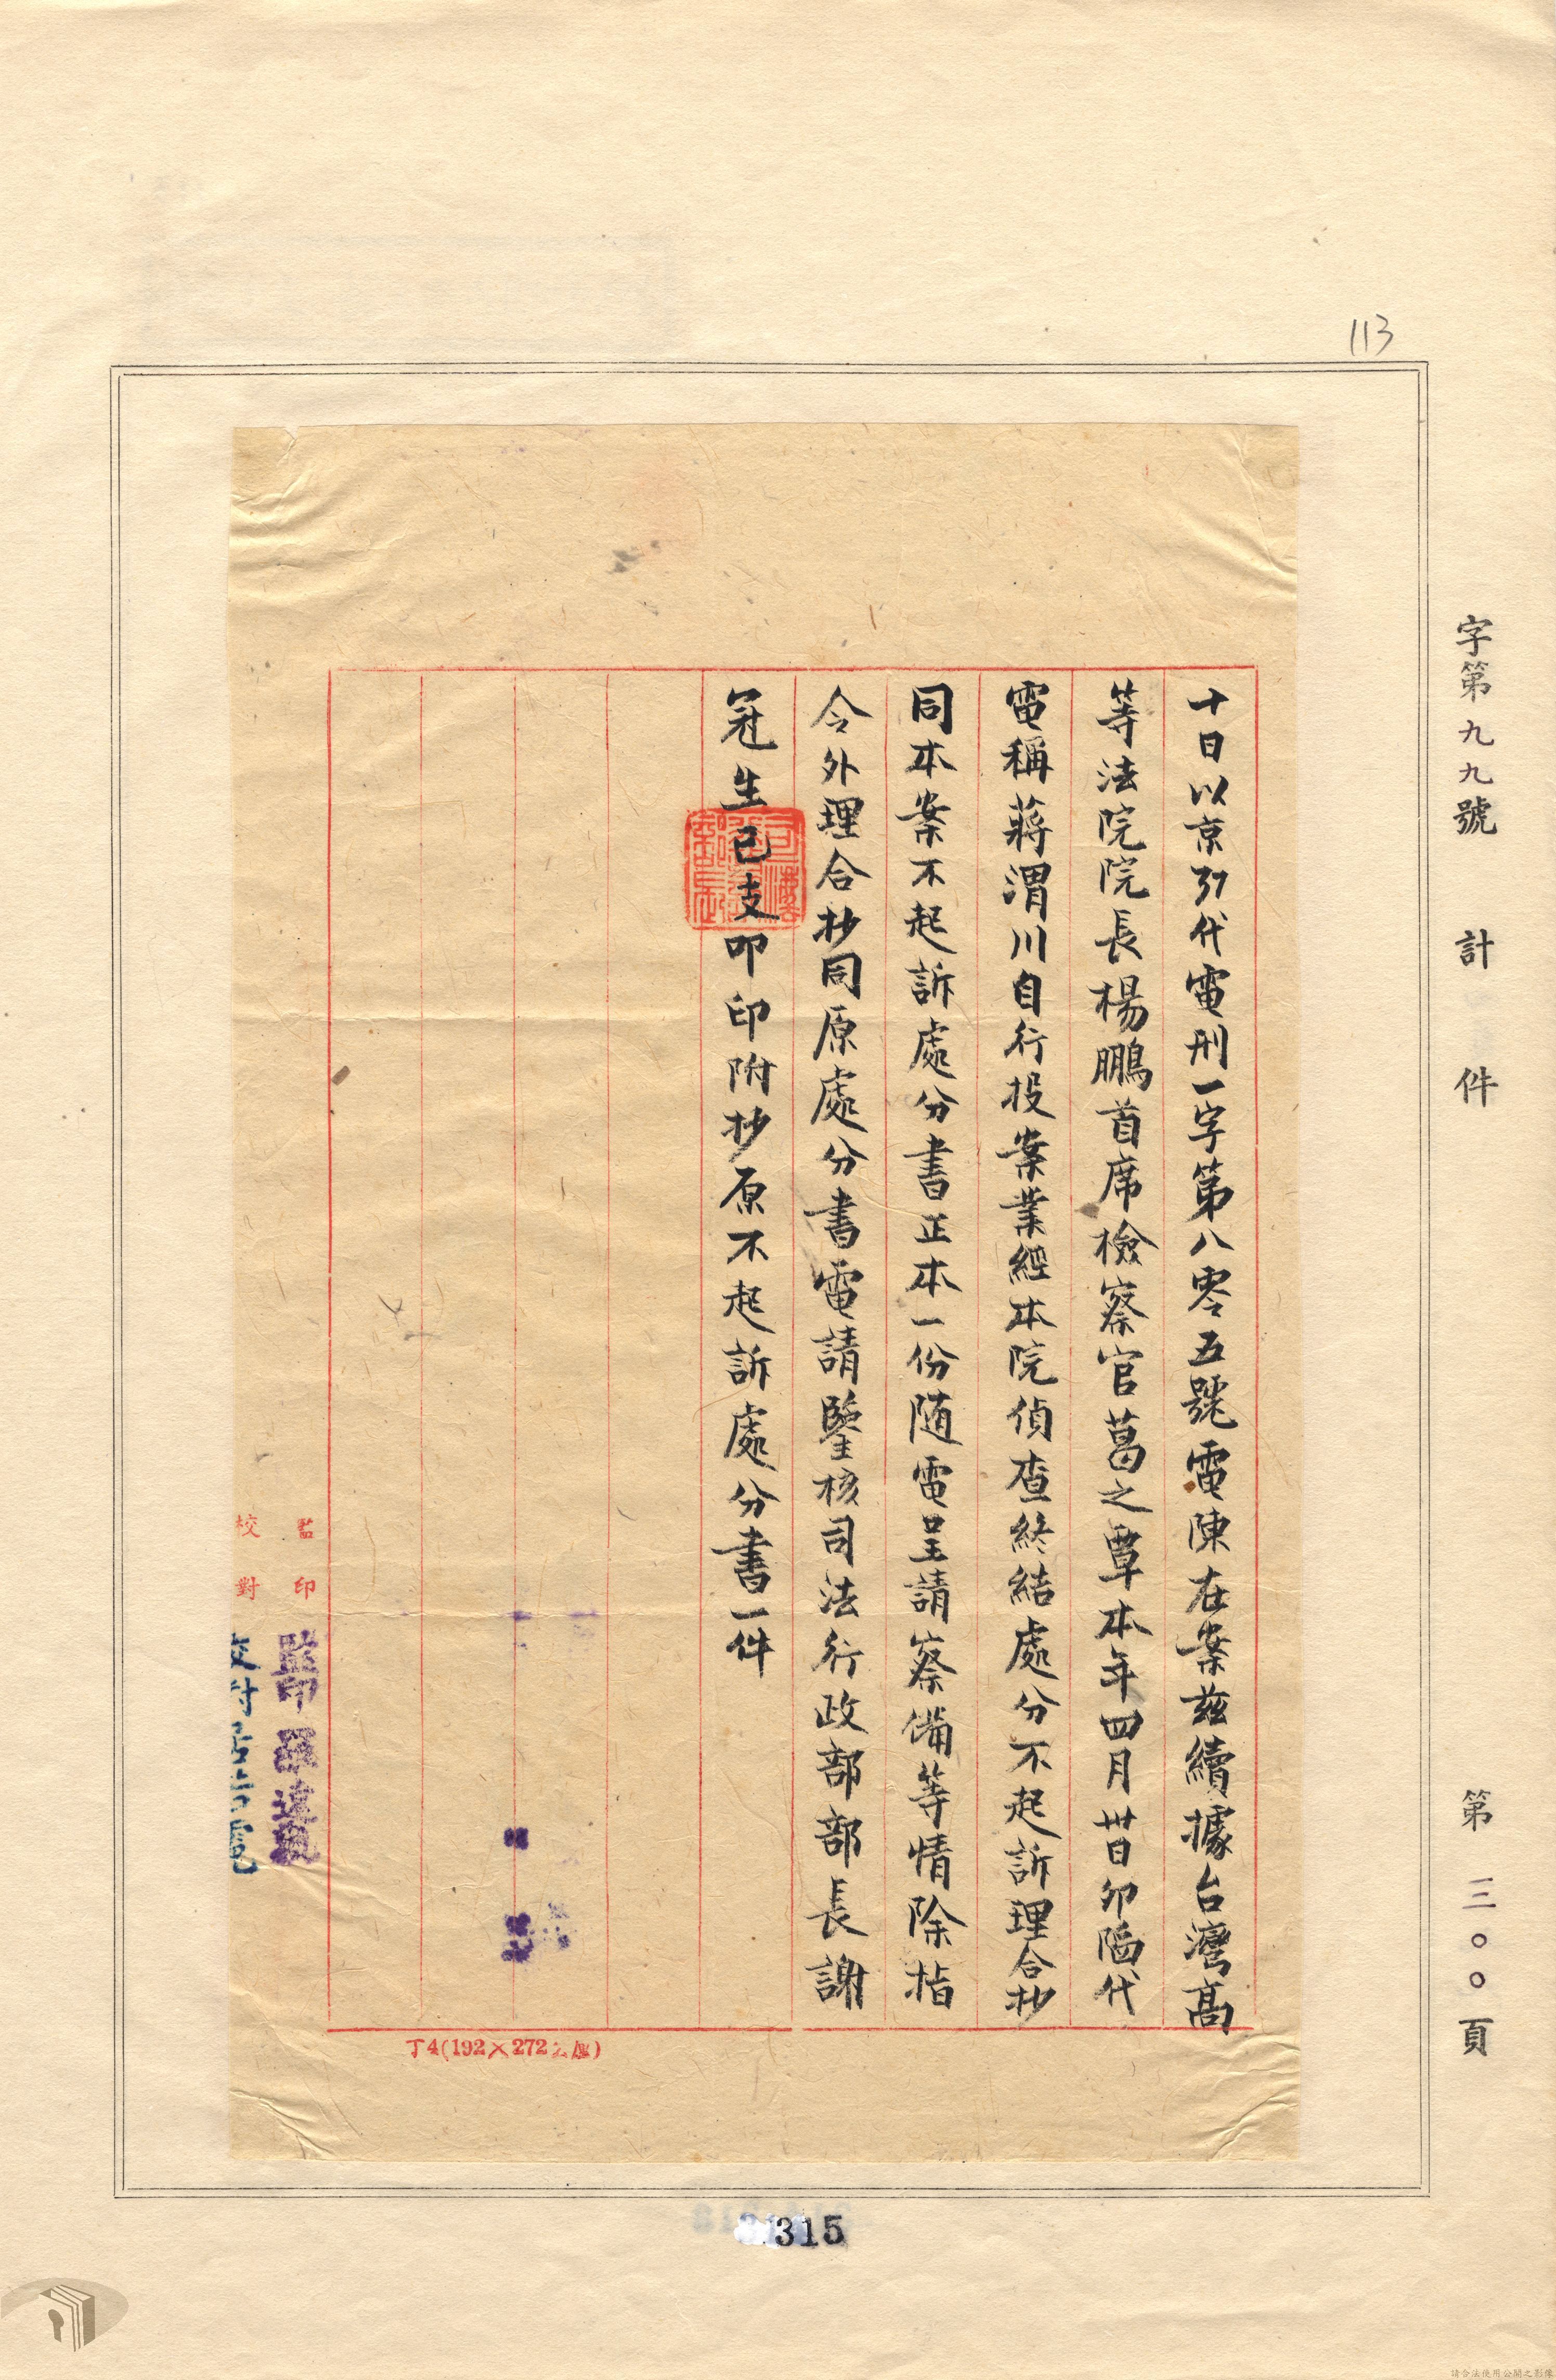 113
字第九九號 計 件 第三〇〇頁
十日以京37代電刑一字第八零五號電陳在案茲續據台灣高
等法院院長楊鵬首席檢察官葛之覃本年四月卅日卯陷代
電稱蔣渭川自行投案業經本院偵查終結處分不起訴理合抄
同本案不起訴處分書正本一份随電呈請察備等情除指
令外理合抄同原處分書電請鑒核司法行政部部長謝
冠生已支叩印附抄原不起訴處分書一件
監印
校對
監印
丁4(192×272公厘)
315
請合法使用公開之影像